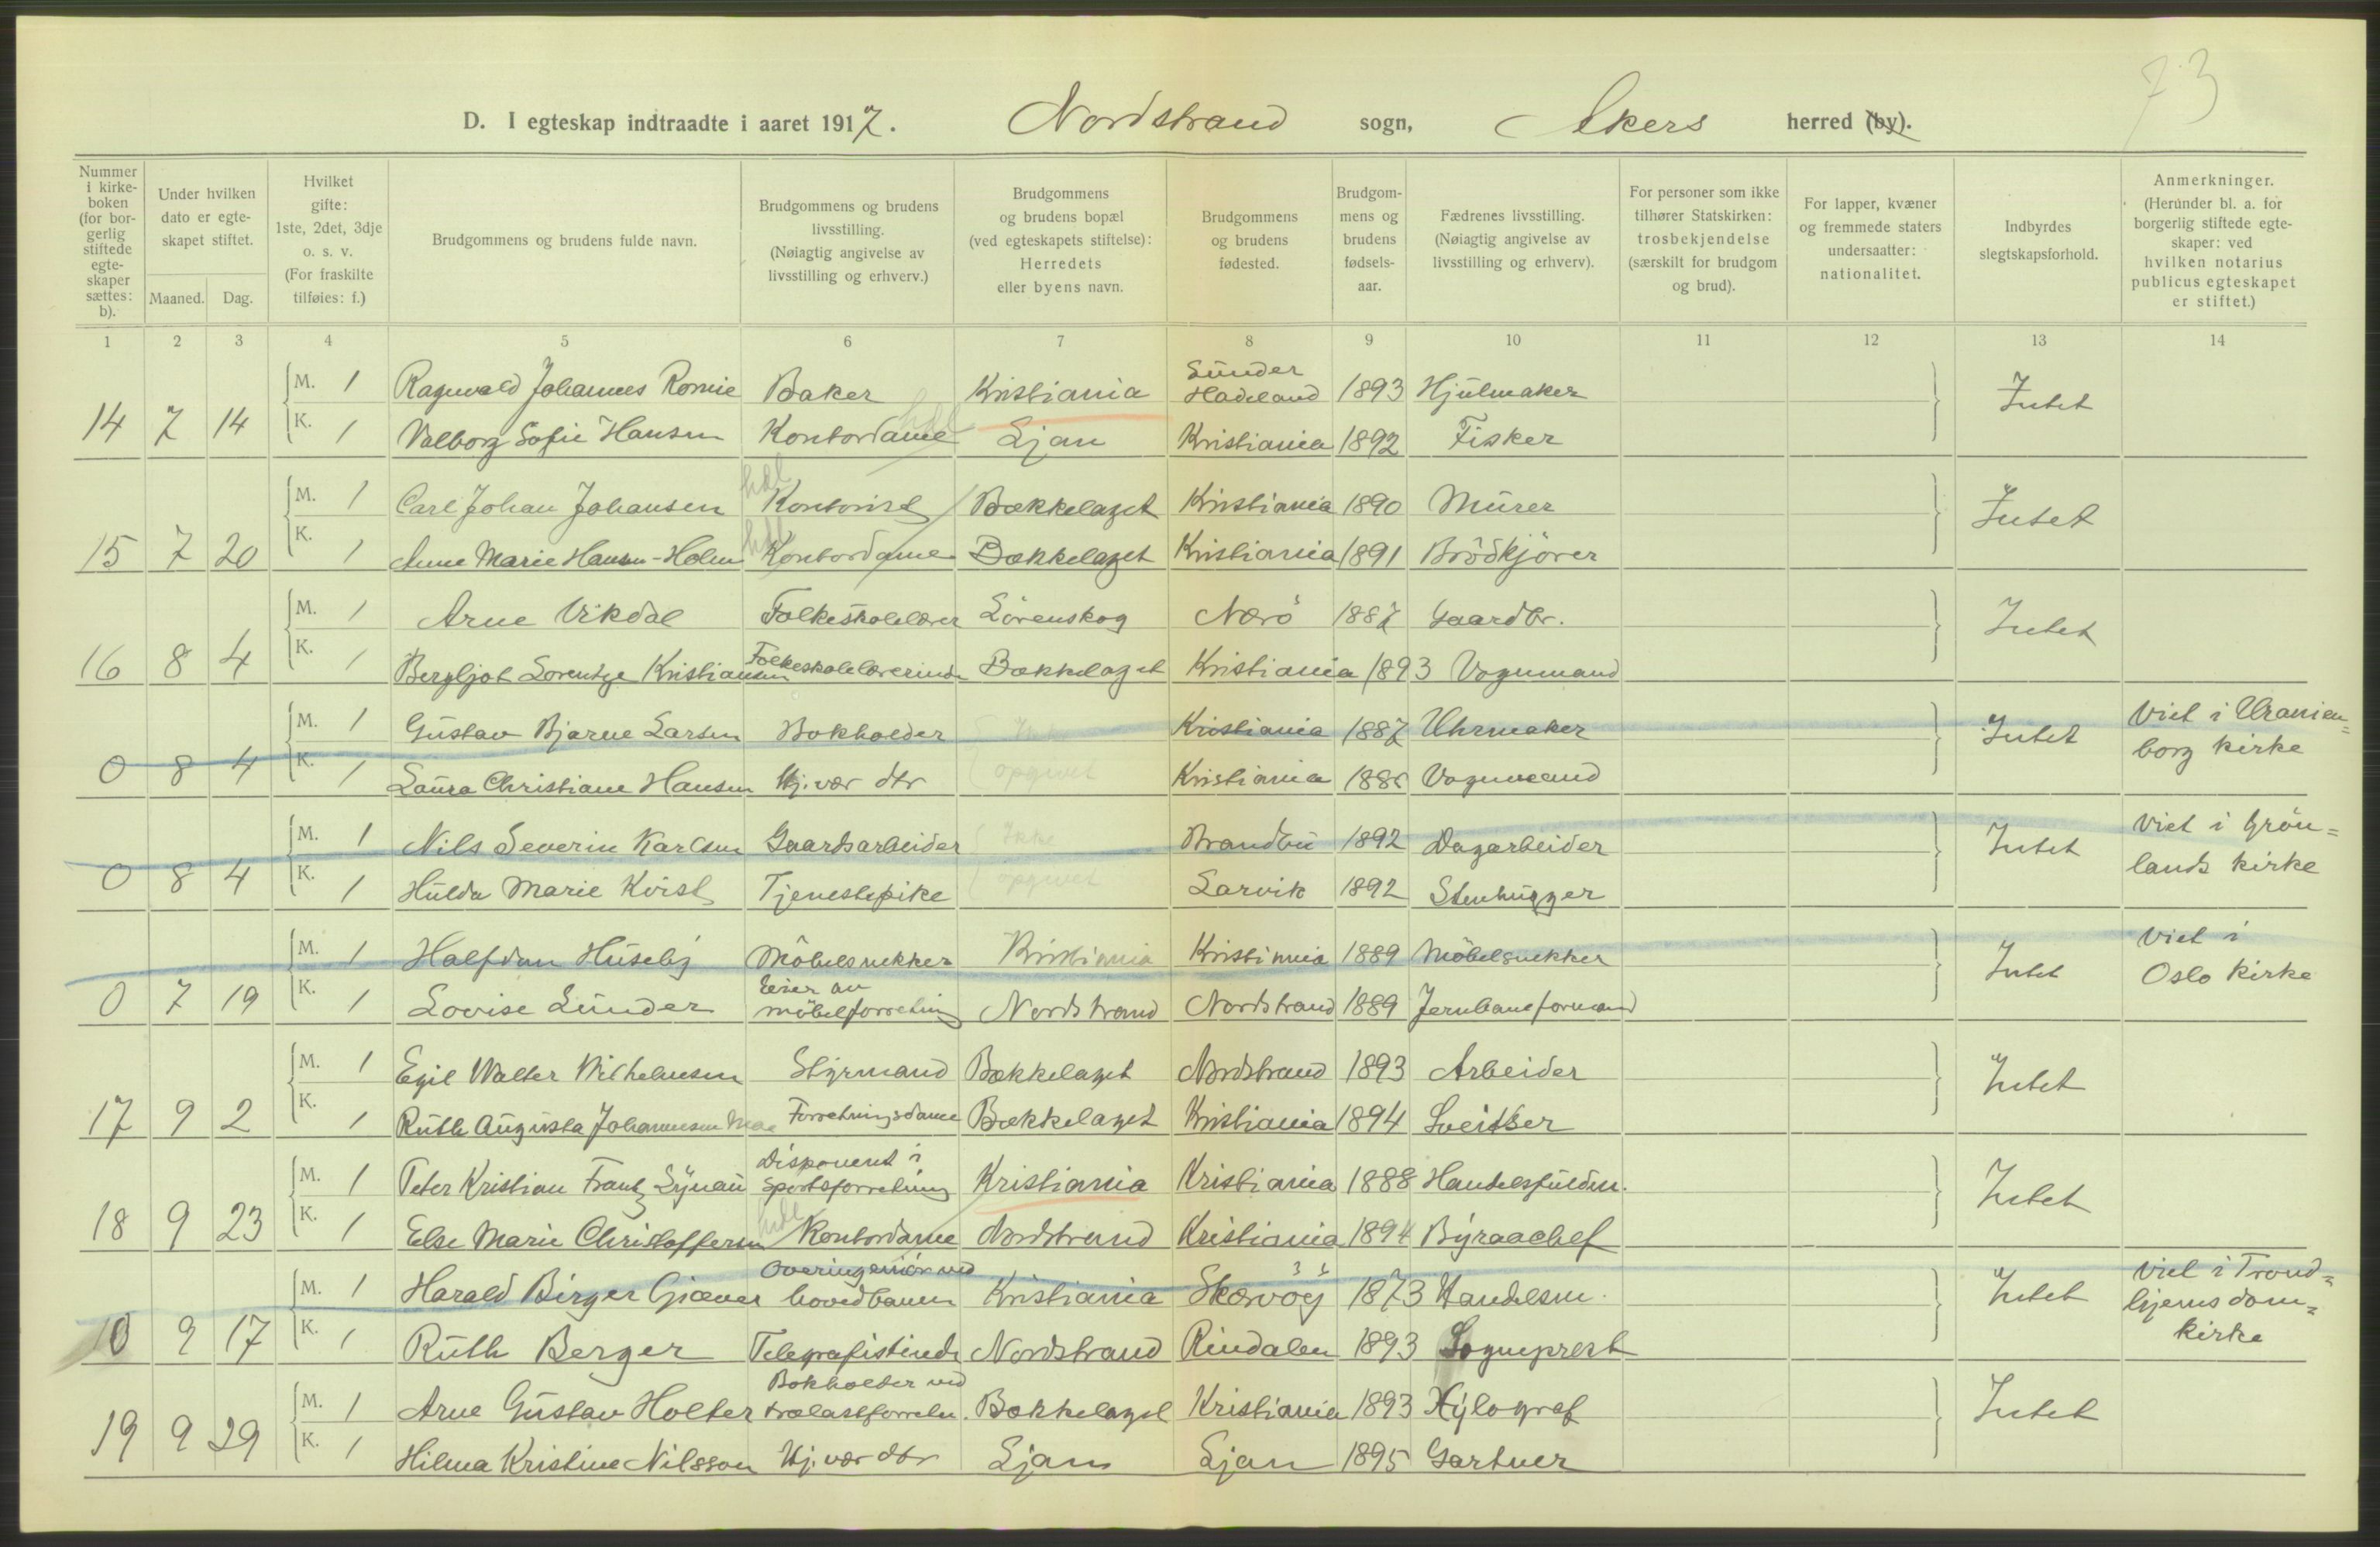 73
D. I egteskap indtraadte i aaret 1917. Nordstrand sogn, Akers herred (by).
Nummer i kirkeboken (for borgerlig stiftede egteskaper sættes: b).
Under hvilken dato er egteskapet stiftet.
Maaned. Dag.
Hvilket gifte: 1ste, 2det, 3dje o. s. v. (For fraskilte tilføies: f.)
Brudgommens og brudens fulde navn.
Brudgommens og brudens livsstilling. (Nøiagtig angivelse av livsstilling og erhverv.)
Brudgommens og brudens bopæl (ved egteskapets stiftelse): Herredets eller byens navn.
Brudgommens og brudens fødested.
Brudgommens og brudens fødselsaar.
Fædrenes livsstilling. (Nøiagtig angivelse av livsstilling og erhverv).
For personer som ikke tilhører Statskirken: trosbekjendelse (særskilt for brudgom og brud).
For lapper, kvæner og fremmede staters undersaatter: nationalitet.
Indbyrdes slegtskapsforhold.
Anmerkninger. (Herunder bl. a. for borgerlig stiftede egteskaper: ved hvilken notarius publicus egteskapet er stiftet.)
1 2 3 4 5 6 7 8 9 10 11 12 13 14
M. 1 Ragnvald Johannes Romie Baker Kristiania Lunder Hadeland 1893 Hjulmaker Intet
14 7 14 K. 1 Valborg Sofie Hansen Kontordame Ljan Kristiania 1892 Fisker
M. 1 Carl Johan Johansen hdl Kontorist Bækkelaget Kristiania 1890 Murer Intet
15 7 20 K. 1 Anne Marie Hansen-Holm hdl Kontordame Bækkelaget Kristiania 1891 Brödkjörer
M. 1 Arne Vikdal Folkeskolelærer Lörenskog Nærö 1887 Gaardbr. Intet
16 8 4 K. 1 Bergljot Lorentze Kristiansen Folkeskolelærerinde Bækkelaget Kristiania 1893 Vognmand
M. 1 Gustav Bjarne Larsen Bokholder Ikke Kristiania 1887 Uhrmaker Intet Viet i Uranien=
0 8 4 K. 1 Laura Christiane Hansen Hj. vær. dtr opgivet Kristiania Vognmand borg kirke
M. 1 Nils Severin Karlsen Gaardsarbeider Ikke Brandbu 1892 Dagarbeider Intet Viet i Grön=
0 8 4 K. 1 Hulda Marie Kvist Tjenestepike opgivet Larvik 1892 Stenhugger lands kirke
M. 1 Halfdan Huseby Möbelsnekker Kristiania Kristiania 1889 Möbelsnekker Intet Viet i
0 7 19 K. 1 Lovise Lunder Eier av möbelforretning Nordstrand Nordstrand 1889 Jernbaneformand Oslo kirke
M. 1 Egil Walter Wilhelmsen Styrmand Bækkelaget Nordstrand 1893 Arbeider Intet
17 9 2 K. 1 Ruth Augusta Johannesen Forretningsdame Bækkelaget Kristiania 1894 Sveitser
M. 1 Peter Kristian Frantz Lynau Disponent i Sportsforretning Kristiania Kristiania 1888 Handelsfuldm. Intet
18 9 23 K. 1 Else Marie Christoffersen hdl Kontordame Nordstrand Kristiania 1894 Byraachef
M. 1 Harald Birger Giæver Overingeniör ved hovedbanen Kristiania Skærvöy 1873 Handelsm. Intet Viet i Trond=
0 9 17 K. 1 Ruth Berger Telegrafistinde Nordstrand Rindalen 1893 Sogneprest hjems dom=
kirke
M. 1 Arne Gustav Holter Bokholder ved trælastforretn. Bækkelaget Kristiania 1893 Xylograf Intet
19 9 29 K. 1 Hilma Kristine Nilsson Hj. vær. dtr Ljan Ljan 1895 Gartner